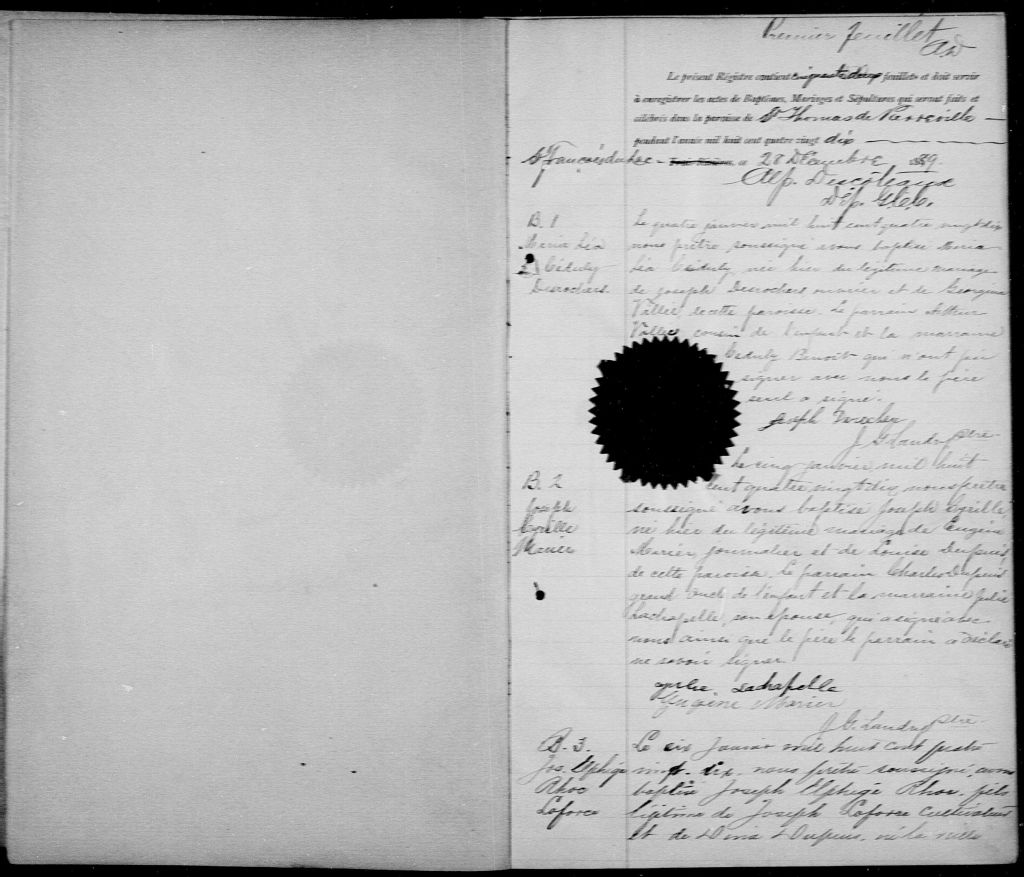 Premier feuillet
AD
Le présent Régistre contient cinquante deux feuillets et doit servir
à enregistrer les actes de Baptêmes, Mariages et Sépultures qui seront faits et
célébrés dans la paroisse de St Thomas de Pierreville
pendant l'année mil huit cent quatre vingt dix
St François du Lac - ce 28 Décembre 1889.
Alp. Descôteaux
Dép. G.C.C.
B. 1
Maria Léa
Céduly
Desrochers.
Le quatre janvier mil huit cent quatre vingt dix
nous prêtre soussigné avons baptisé Maria
Léa Céduly, née hier du légitime mariage
de Joseph Desrochers ouvrier et de Georgina
Vallée de cette paroisse. Le parrain Arthur
Vallée, cousin de l'enfant et la marraine
Céduly Benoit qui n'ont pu
signer avec nous le père
seul a signé.
Joseph
J. G. Landry ptre
B. 2
Joseph
Cyrille
Marier
Le cinq janvier mil huit
cent quatre vingt dix, nous prêtre
soussigné avons baptisé Joseph Cyrille
né hier du légitime mariage de Eugène
Marier, journalier et de Louise Dupuis
de cette paroisse. Le parrain Charles Dupuis
grand oncle de l'enfant et la marraine Julie
Lachapelle, son épouse, qui a signé avec
nous ainsi que le père le parrain a déclaré
ne savoir signer.
Julie Lachapelle
Eugène Marier
J. G. Landry ptre
B. 3.
Jos. Elphège
Rhoe
Laforce
Le six Janvier mil huit cent quatre
vingt-dix, nous prêtre soussigné, avons
baptisé Joseph Elphège Rhoe, fils
légitime de Joseph Laforce cultivateur
et de Dina Dupuis, né la veille